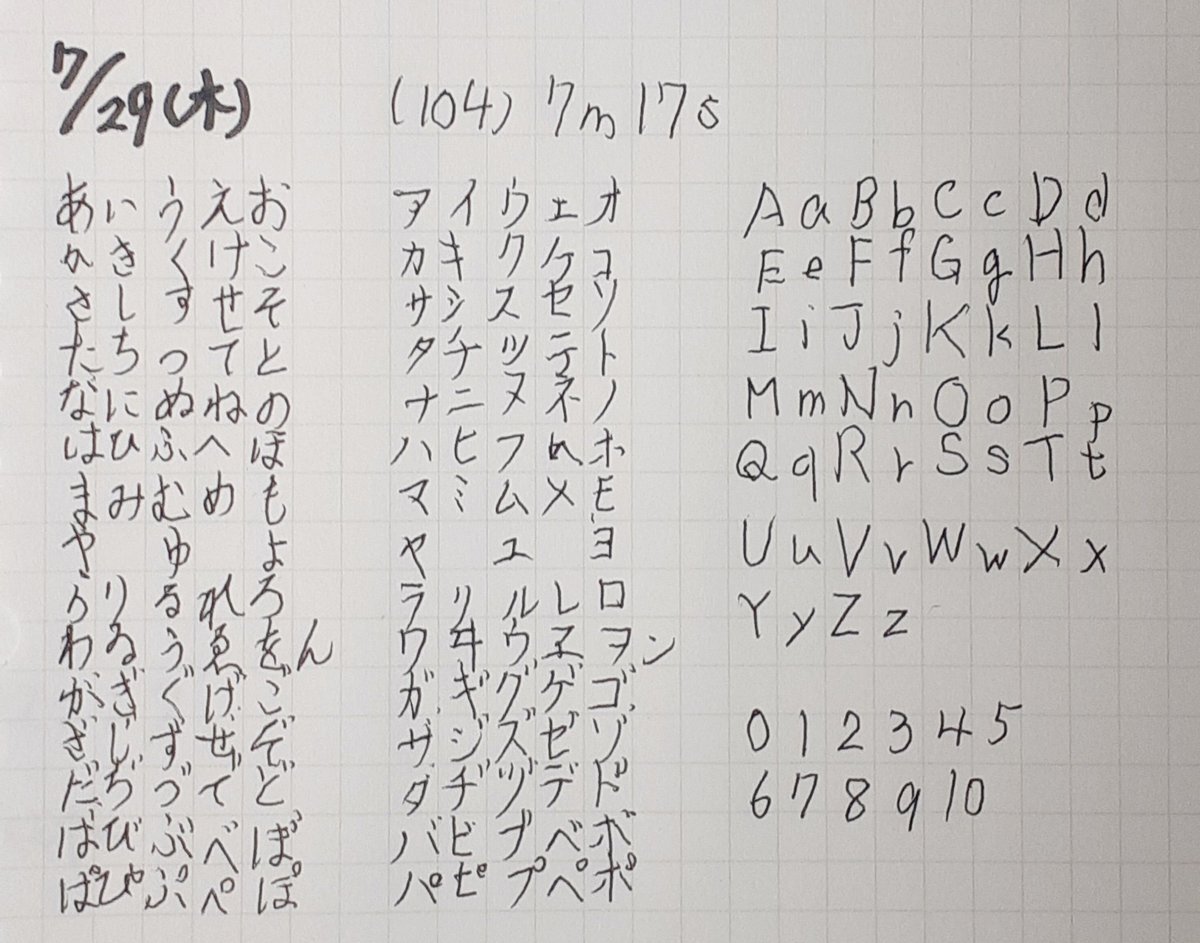 7/29(木)
(104) 7m17s
あいうえお
かきくけこ
さしすせそ
たちつてと
なにぬねの
はひふへほ
まみむめも
やゆよ
らりるれろ
わゐうゑをん
がぎぐげご
ざじずぜぞ
だぢづでど
ばびぶべぼ
ぱぴぷぺぽ
アイウエオ
カキクケコ
サシスセソ
タチツテト
ナニヌネノ
ハヒフヘホ
マミムメモ
ヤユヨ
ラリルレロ
ワヰウヱヲン
ガギグゲゴ
ザジズゼゾ
ダヂヅデド
バビブベボ
パピプペポ
A a B b C c D d
E e F f G g H h
I i J j K k L l
M m N n O o P p
Q q R r S s T t
U u V v W w X x
Y y Z z
0 1 2 3 4 5
6 7 8 9 10